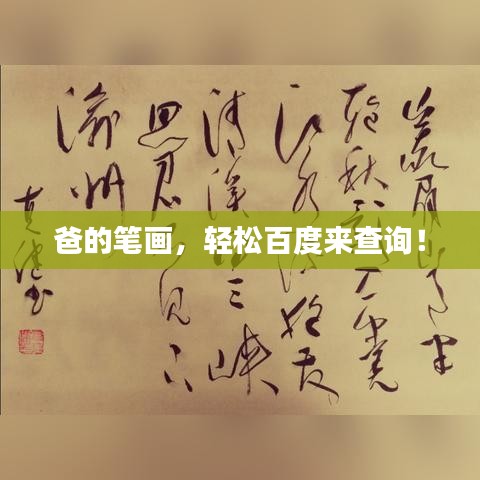 峨眉山月半
轮秋影入平羌
江水夜发
清溪三峡
思君见下
渝州
书
爸的笔画，轻松百度来查询！